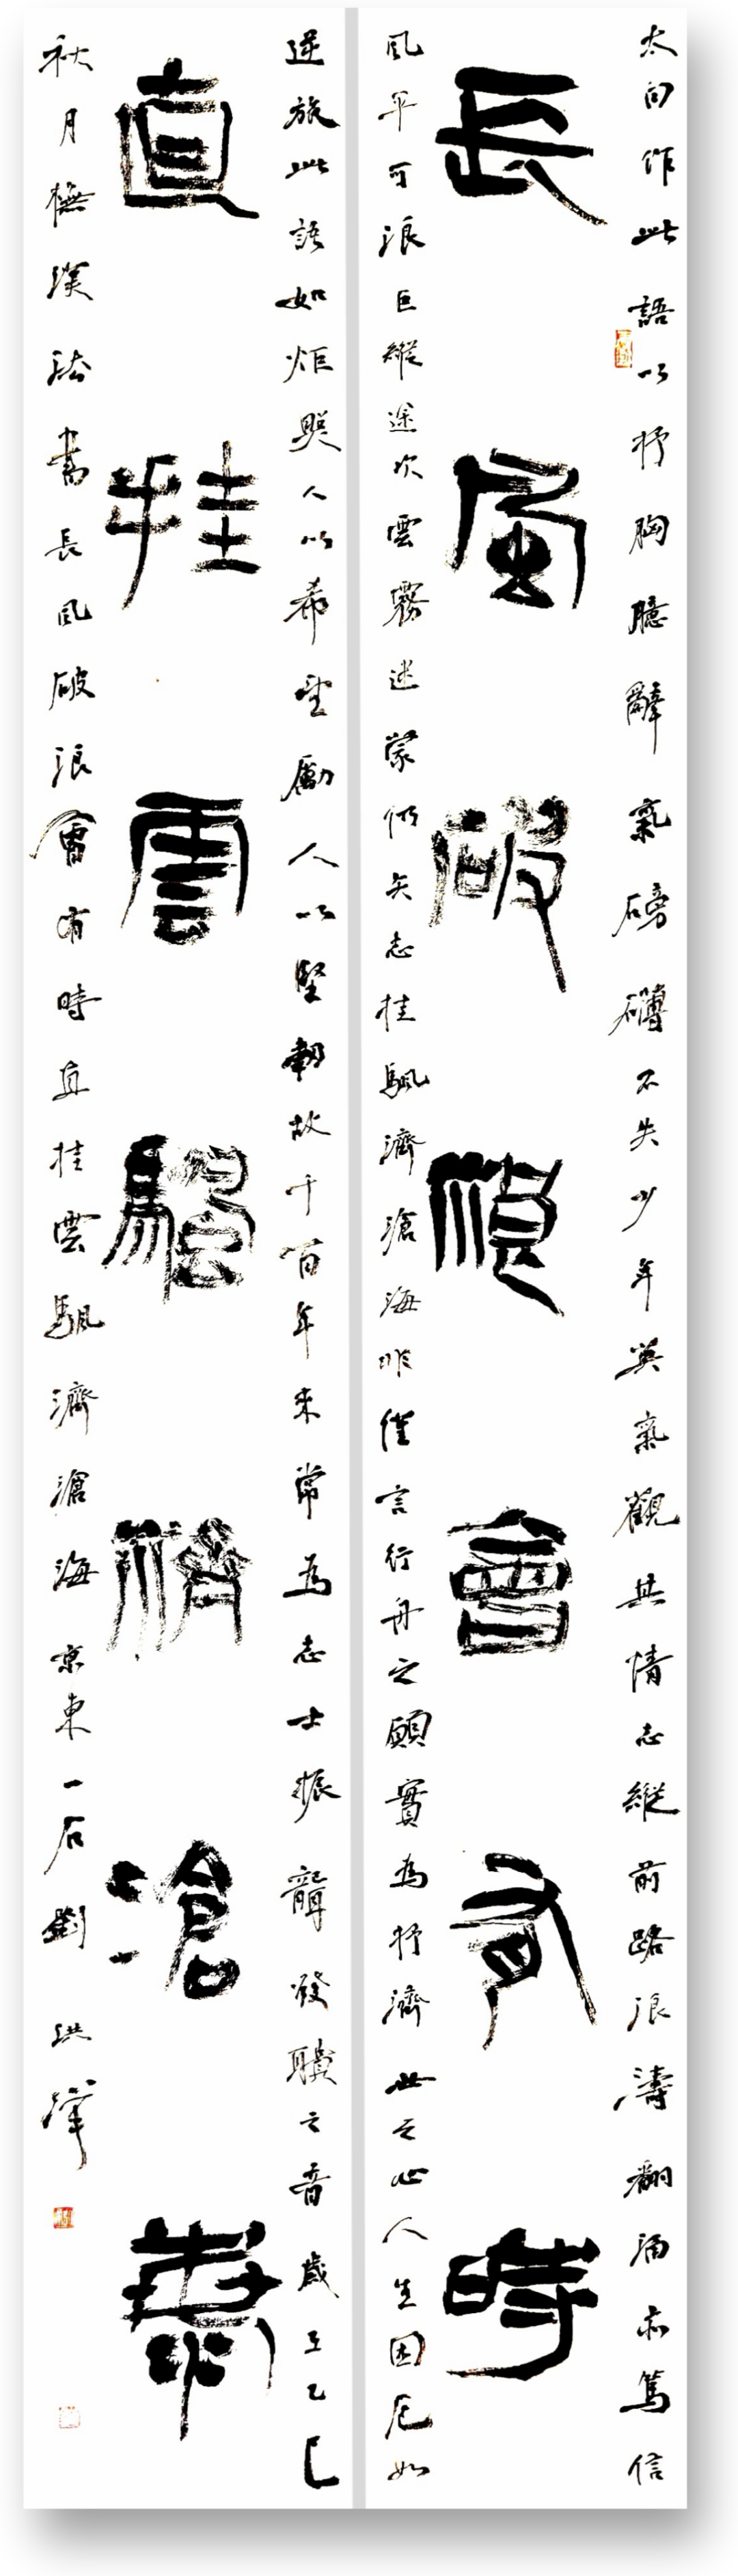 太白作此語以抒胸臆辭氣磅礴不失少年英氣觀其情志縱前路浪濤翻涌亦篤信
長風破浪會有時
風平可浪巨縱途次雲霧迷蒙仍矢志挂颿濟滄海非僅言行舟之願實為抒濟世之心人生困厄如
逆旅此語如炬照人以希望勵人以堅韌故千百年來常為志士振聾發聵之音歲在乙巳
直挂雲颿濟滄海
秋月撫漢法書長風破浪會有時直挂雲颿濟滄海京東一石劉洪